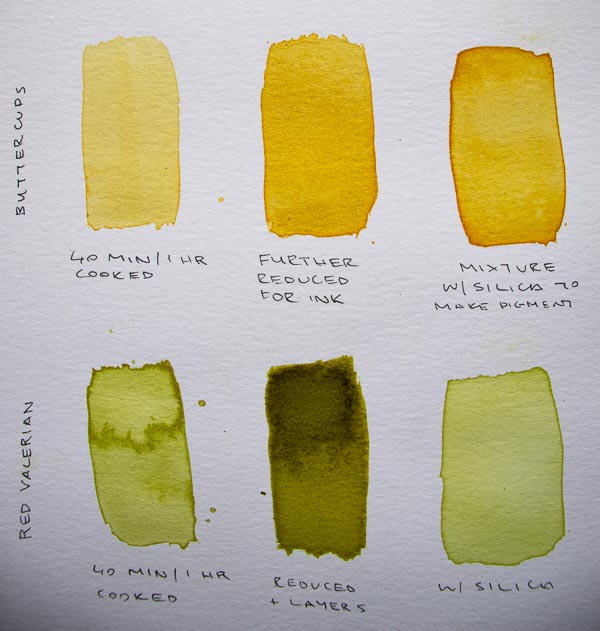 BUTTERCUPS
40 MIN/1 HR
COOKED
FURTHER
REDUCED
FOR INK
MIXTURE
W/ SILICA TO
MAKE PIGMENT
RED VALERIAN
40 MIN/1 HR
COOKED
REDUCED
+ LAYERS
W/ SILICA